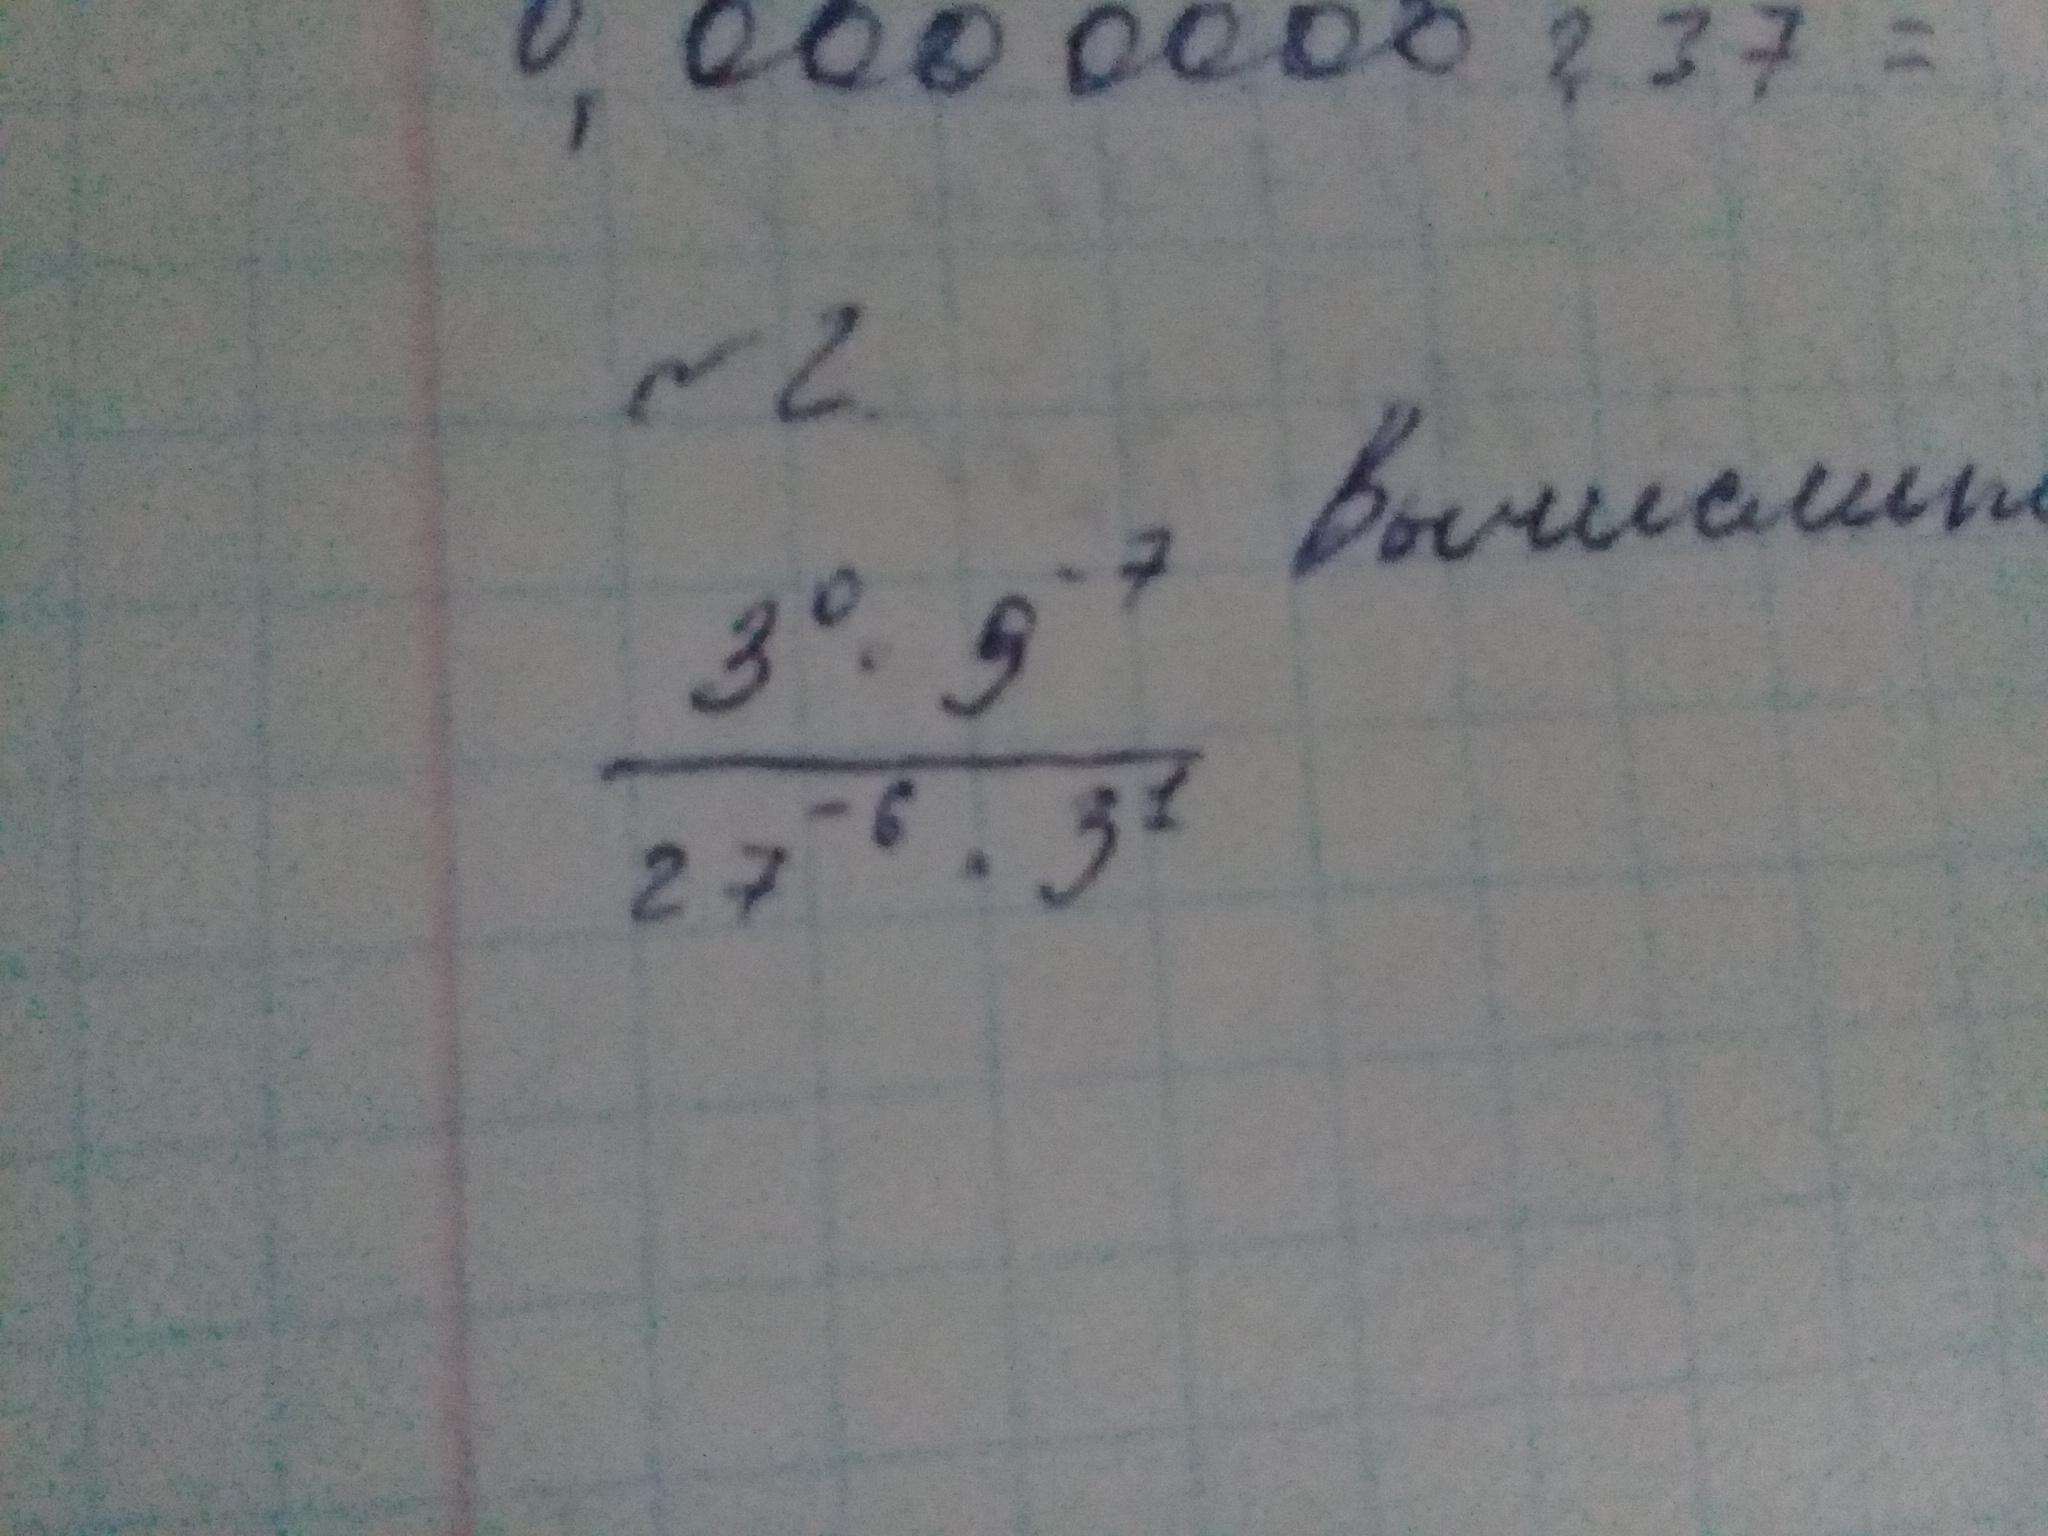 0,0000000237 =
№2
Вычислить
3⁰ · 9⁻⁷
27⁻⁶ · 3¹